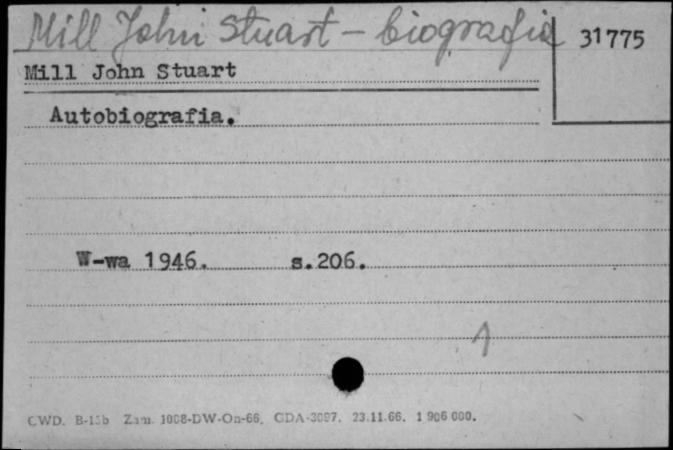 Mill John Stuart – biografia
31775
Mill John Stuart
Autobiografia.
W-wa 1946. s.206.
1
CWD. B-15b Zam. 1008-DW-On-66, GDA-3097. 23.11.66. 1 906 000.